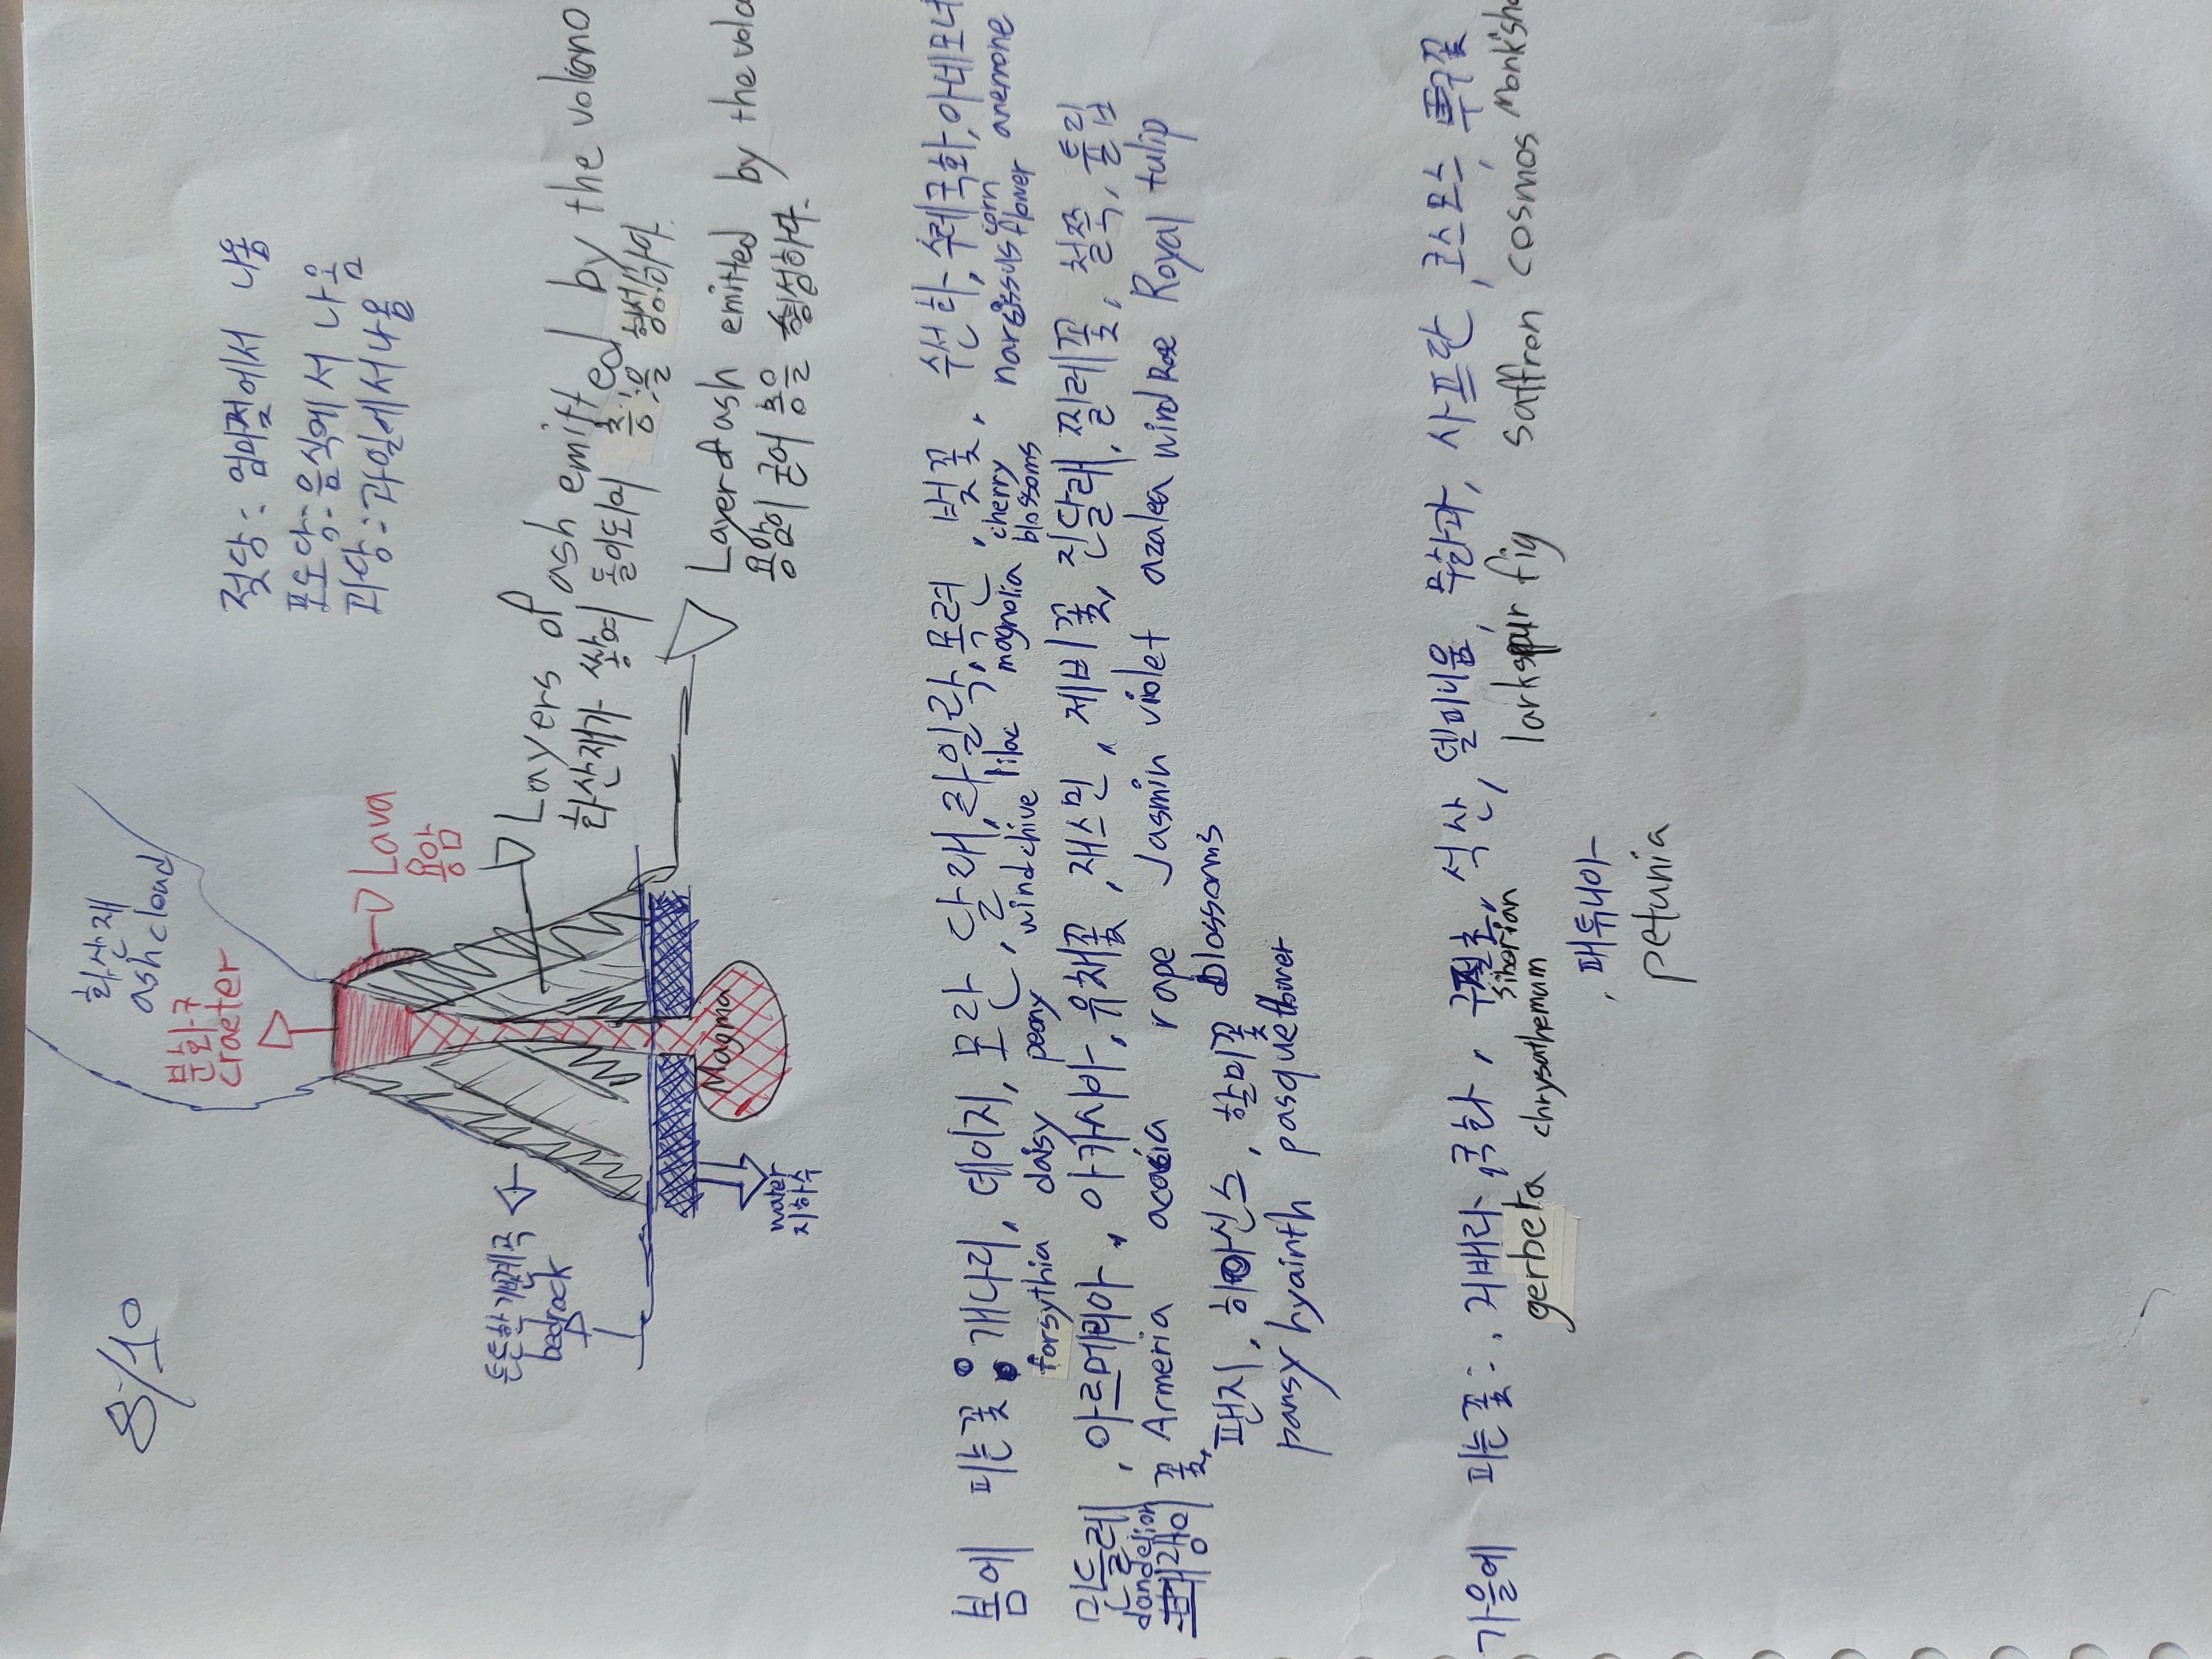 8/10
화산재
ash cloud
분화구
craeter
Lava
용암
젖당: 엄미젖에서 나옴
포도당: 음식에서 나옴
과당: 과일에서 나옴
튼튼한 기반계곡
bedrock
Layers of ash emitted by the voliono
화산재가 쌓여 돌이되어 층을 형성하다.
Layer of ash emitted by the volc
용암이 굳어 층을 형성하다.
Magma
water
지하수
봄에 피는꽃: 개나리, 데이지, 모란, 달래, 라일락, 목련, 벚꽃, 수선화, 수레국화, 아네모네
forsythia daisy peony windchive lilac magnolia cherry blossoms narcissus corn flower anemone
민들레, 아르메리아, 아카시아, 유채꽃, 재스민, 제비꽃, 진달래, 찔레꽃, 철쭉, 튤립
dandelion Armeria acasia rape blossoms Jasmin violet azalea wind Rose Royal tulip
꽃, 팬지, 히아신스, 할미꽃
pansy hyainth pasqueflower
가을에 피는꽃: 거베라, 국화, 구절초, 석산, 델피니움, 무화과, 샤프란, 코스모스, 투구꽃
gerbera chrysathemum siberian larkspur fig saffron cosmos Monk'sho
, 페튜니아
petunia